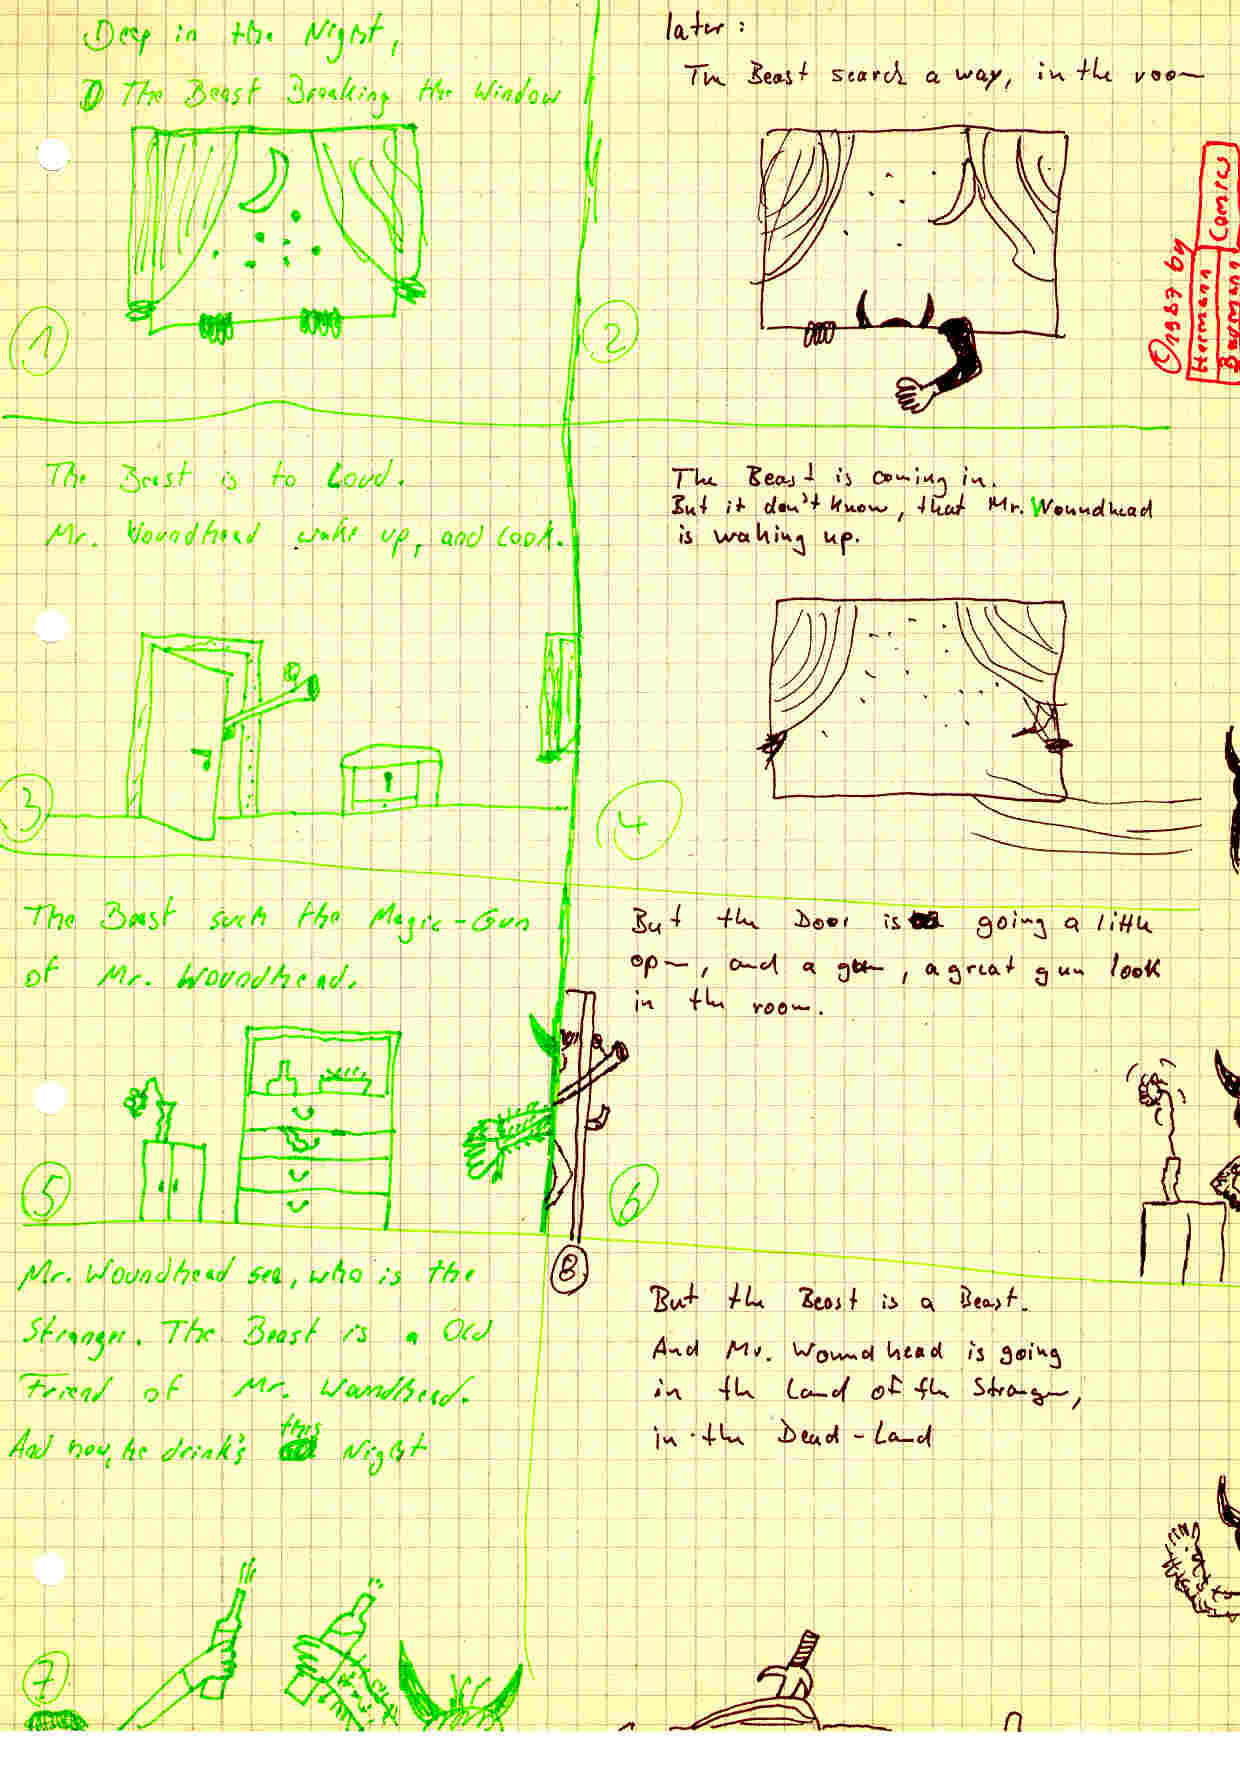 Deep in the Night,
The Beast Breaking the Window
1
later:
The Beast search a way, in the room
2
©1987 by
Hermann
Baymann
Comics
The Beast is to Loud.
Mr. Woundhead wake up, and look.
3
The Beast is coming in.
But it don't know, that Mr. Woundhead
is waking up.
4
The Beast such the Magic-Gun
of Mr. Woundhead.
5
But the Door is going a little
open, and a gun, a great gun look
in the room.
6
Mr. Woundhead see, who is the
Stranger. The Beast is a Old
Friend of Mr. Woundhead.
And now, he drink's this Night
7
8
But the Beast is a Beast.
And Mr. Woundhead is going
in the Land of the Stranger,
in the Dead-Land